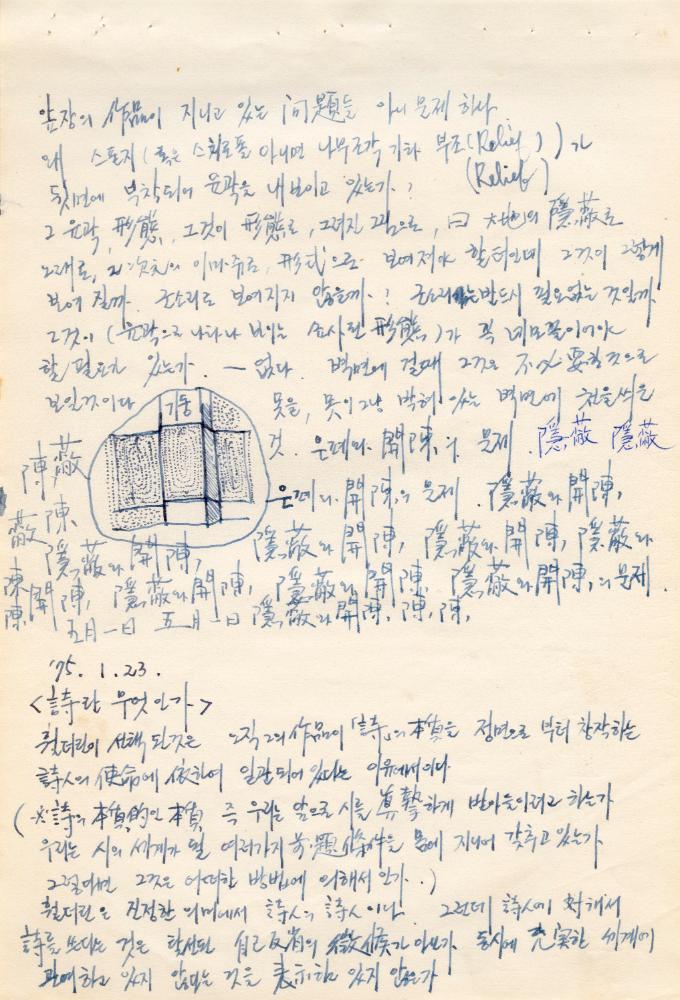 앞장의 作品이 지니고 있는 问題들 아니 문제 하나
왜 스폰지(혹은 스치로폴 아니면 나무조각 기타 부조(Relief))가
(Relief)
뒷면에 부착되어 윤곽을 내보이고 있는가?
그 윤곽, 形態, 그것이 形態로, 그려진 그림으로, 曰 大地의 隱蔽로
노래로, 2次元의 이마쥬로, 形式으로 보여져야 할터인데 그것이 그렇게
보여 질까. 군소리로 보여지지 않을까? 군소리는 반드시 필요없는 것일까
그것이 (윤곽으로 나타나 보이는 形態)가 꼭 네모꼴이어야
할 필요가 있는가. — 없다. 벽면에 걸때 그것은 不必要한 것으로
보일것이다
기둥
못을, 못이 그냥 박혀 있는 벽면에 천을 씌운
것. 은폐와 開陳의 문제. 隱蔽 隱蔽
은폐와 開陳의 문제. 隱蔽와 開陳,
陳 蔽
蔽 陳
隱蔽와 開陳, 隱蔽와 開陳, 隱蔽와 開陳, 隱蔽와
陳 開陳, 隱蔽와 開陳, 隱蔽와 開陳, 隱蔽와 開陳,의 문제.
陳, 五月一日 五月一日 隱蔽와 開陳, 陳, 陳,
'75. 1. 23.
<詩란 무엇인가>
횔더린이 선택된것은 오직 그의 作品이 「詩」의 本質을 정면으로 부터 창작하는
詩人의 使命에 依하여 일관되어 있다는 이유에서이다.
(※ 詩의 本質的인 本質 즉 우리는 앞으로 시를 眞摯하게 받아들이려고 하는가
우리는 시의 세계가 될 여러가지 前題條件을 몸에 지니어 갖추고 있는가
그렇다면 그것은 어떠한 방법에 의해서 인가..)
횔더린은 진정한 의미에서 詩人의 詩人이다. 그런데 詩人에 対해서
詩를 쓰다는 것은 自己反省의 徵候가 아닌가 동시에 充実한 세계에
관여하고 있지 않다는 것을 表示하고 있지 않은가